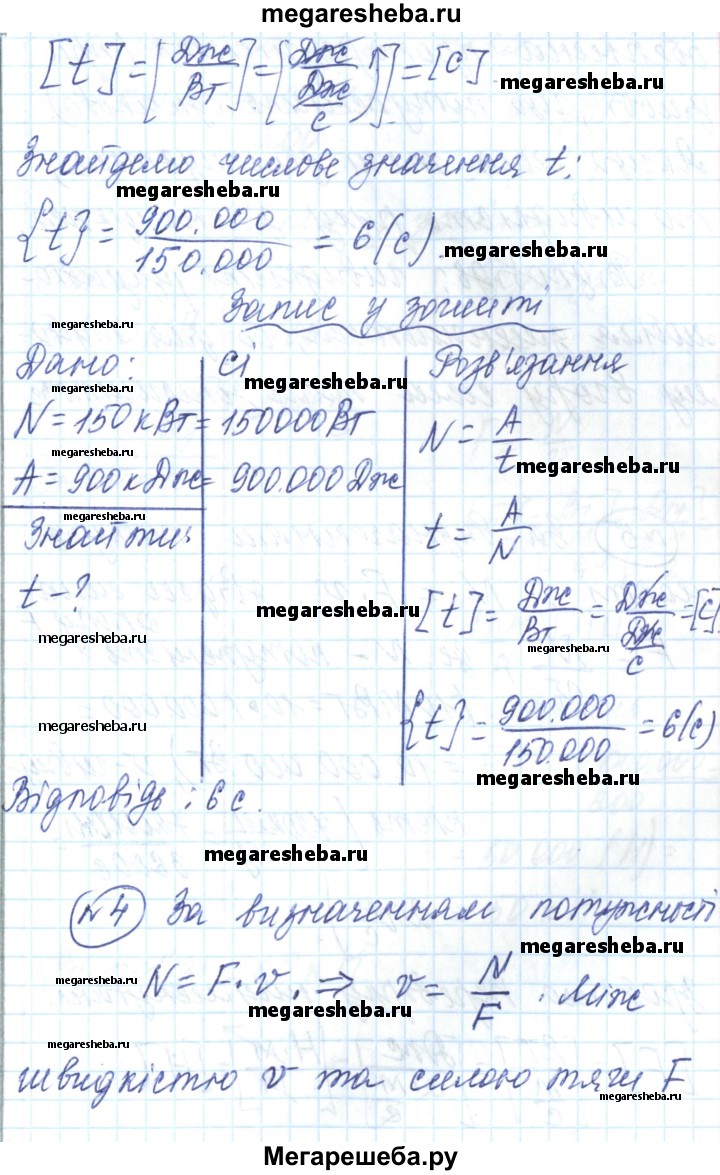 megaresheba.ru
[t] = [Дж/Вт] = [Дж/(Дж/с)] = [с].
Знайдемо числове значення t:
megaresheba.ru
{t} = 900.000/150.000 = 6(с).
megaresheba.ru
Запис у зошиті
megaresheba.ru
Дано: СІ Розв'язання
megaresheba.ru
megaresheba.ru
N = 150 кВт = 150000 Вт N = A/t
megaresheba.ru
megaresheba.ru
A = 900 кДж = 900.000 Дж
megaresheba.ru
Знайти: t = A/N
t - ?
megaresheba.ru
megaresheba.ru
[t] = Дж/Вт = Дж/(Дж/с) = [с]
megaresheba.ru
megaresheba.ru
{t} = 900.000/150.000 = 6(с)
megaresheba.ru
Відповідь: 6 с.
megaresheba.ru
№4 За визначенням потужності
megaresheba.ru
megaresheba.ru
N = F · v. ⇒ v = N/F. Між
megaresheba.ru
megaresheba.ru
швидкістю v та силою тяги F
megaresheba.ru
Мегарешеба.ру